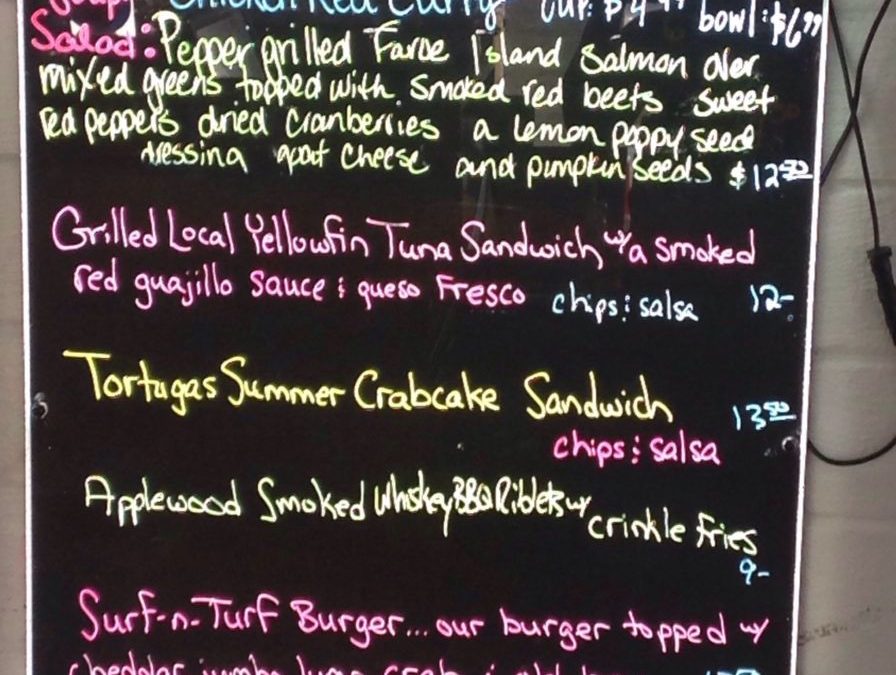 Soup: Chicken Red Curry cup: $4.99 bowl: $6.99
Salad: Pepper grilled Faroe Island Salmon over
mixed greens topped with smoked red beets sweet
red peppers dried cranberries a lemon poppy seed
dressing goat cheese and pumpkin seeds $12.50
Grilled Local Yellowfin Tuna Sandwich w/a smoked
red guajillo sauce & queso Fresco chips & salsa 12-
Tortugas Summer Crabcake Sandwich 13.50
chips & salsa
Applewood Smoked Whiskey BBQ Riblets w/
crinkle fries
9-
Surf-n-Turf Burger... our burger topped w/
cheddar jumbo lump crab &